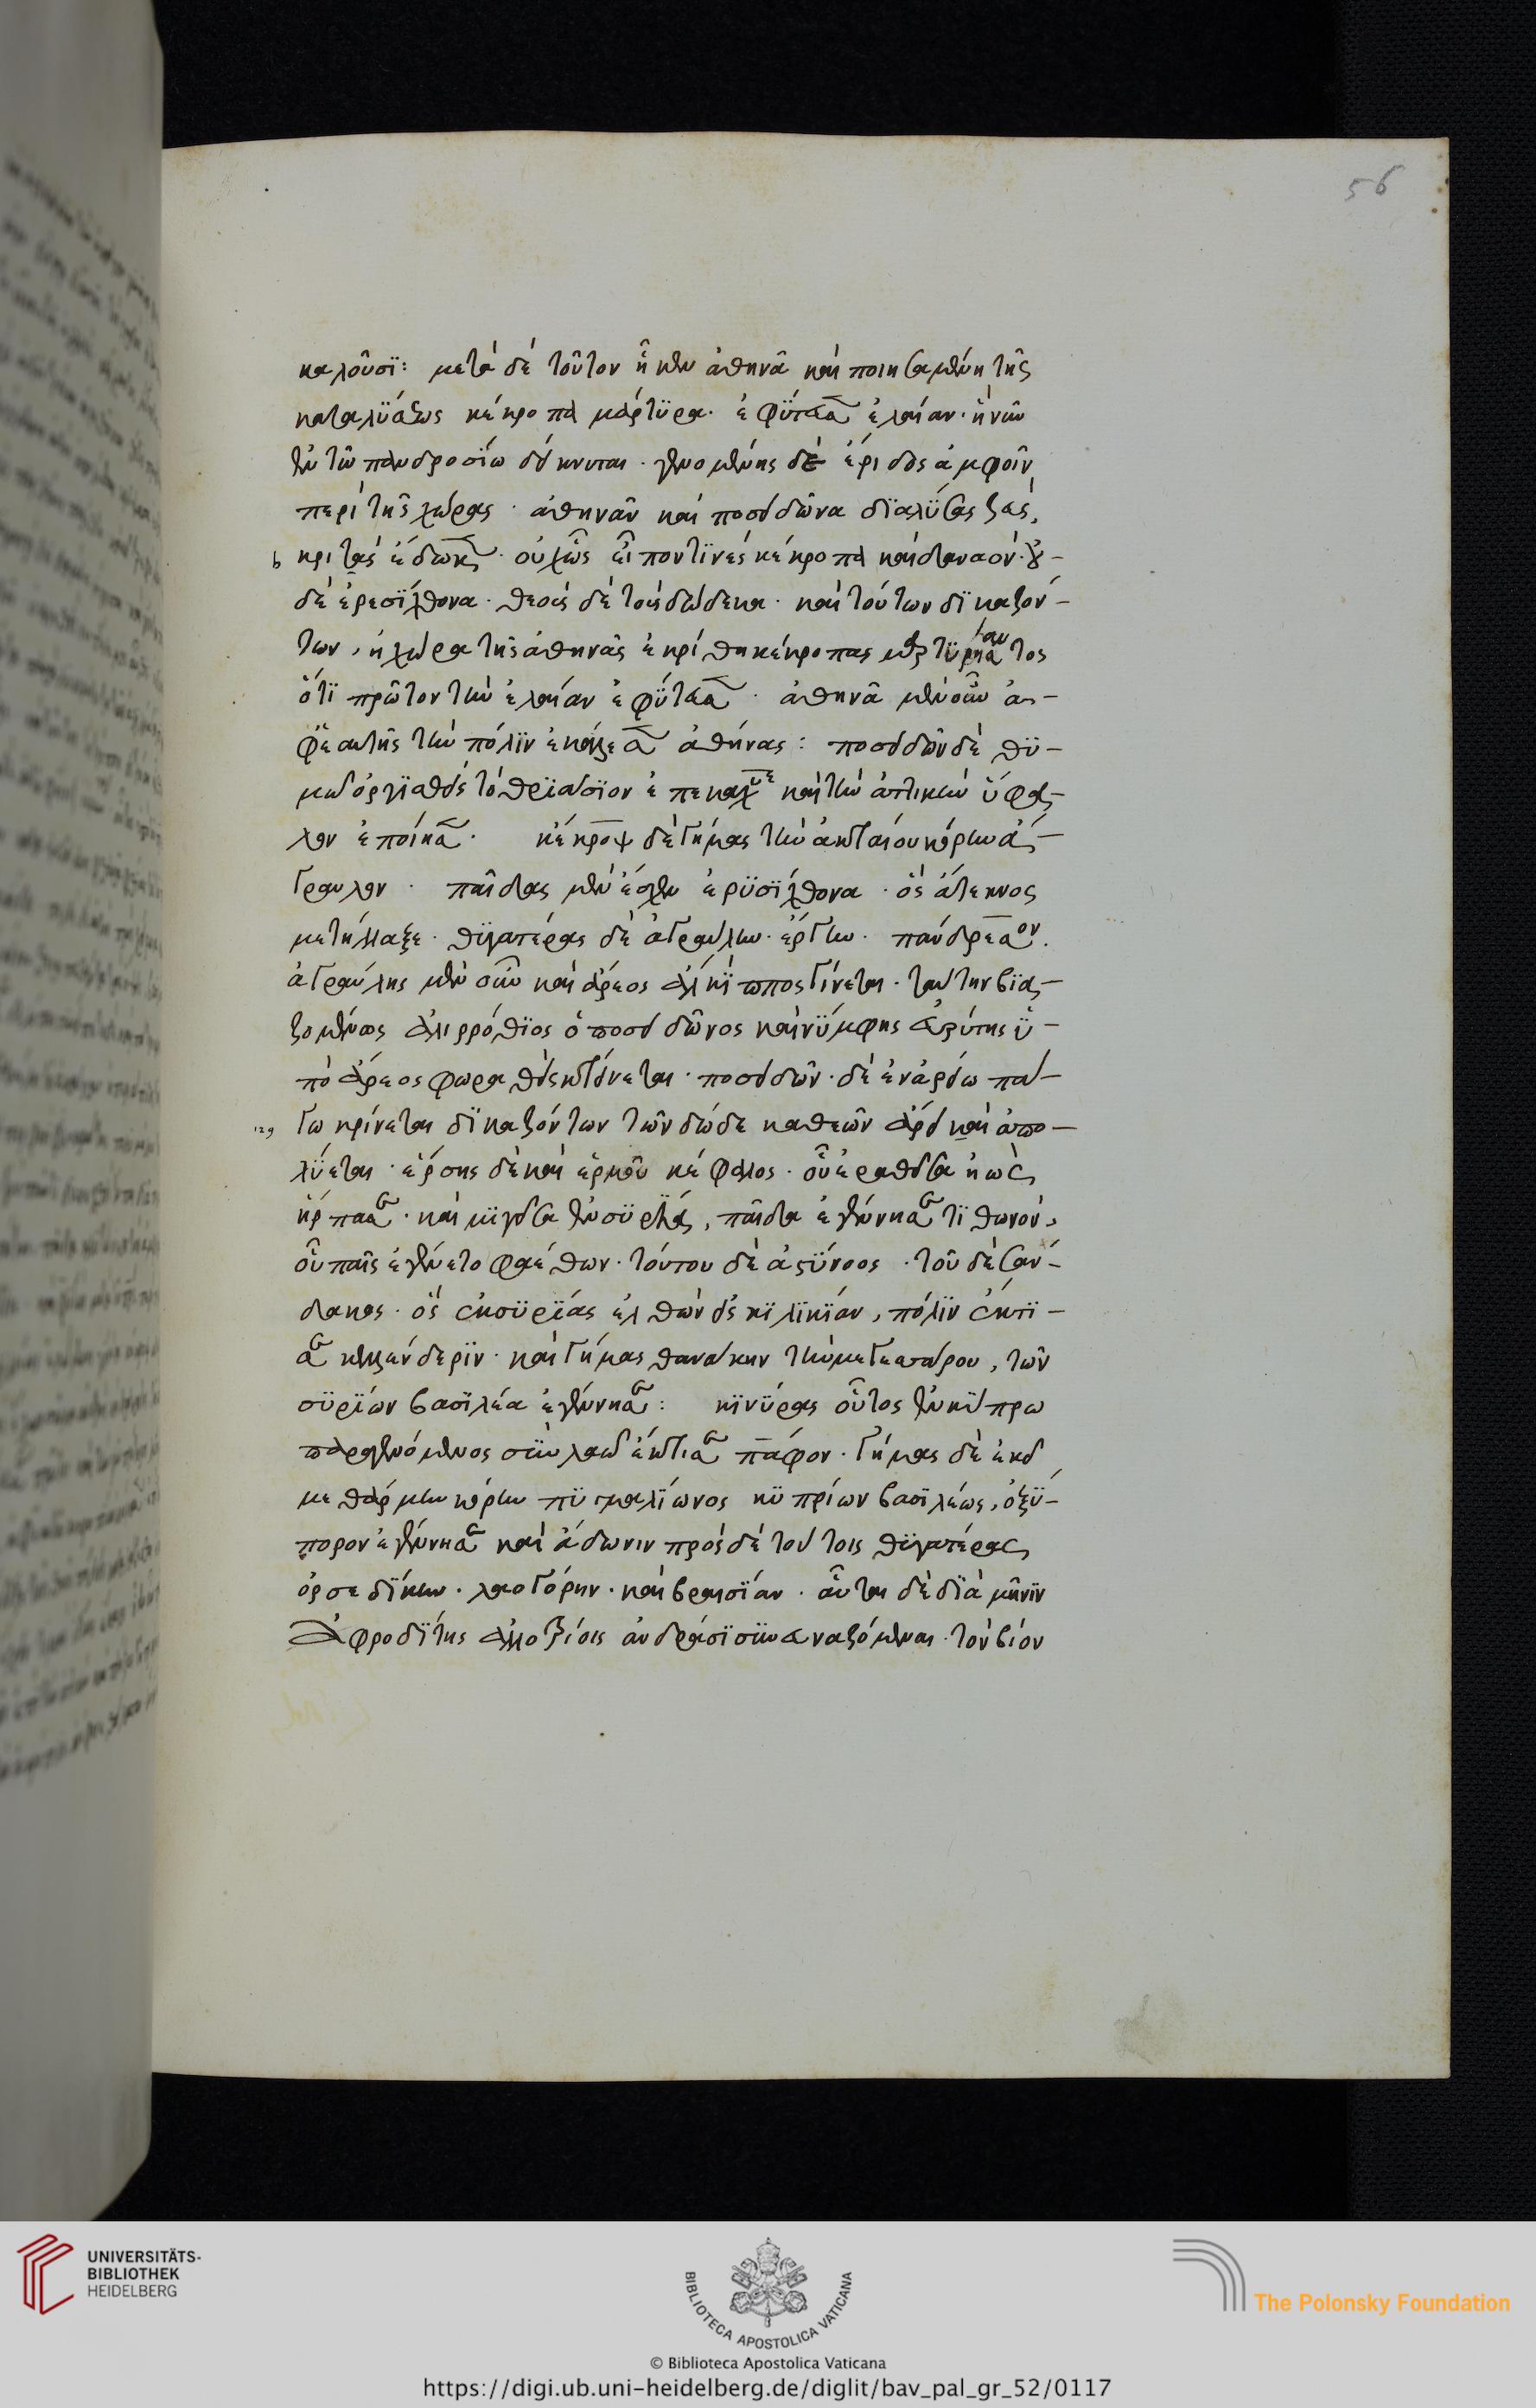 56
καλοῦσϊ: μετὰ δὲ τοῦτον ἧκεν ἀθηνᾶ καὶ ποιησαμένη τῆς
καταλϋάξως κέκροπα μάρτϋρα· ἐφΰτευσεν ἐλαίαν· ἣ νῦν
ἐν τῶ πανδροσίω δείκνυται· γενομένης δὲ ἔριδος ἀμφοῖν
περὶ τῆς χώρας· ἀθηνᾶν καὶ ποσειδῶνα δϊαλΰσας ζεὺς,
κριτὰς ἔδωκεν· οὐχ ὡς εἶπον τϊνὲς κέκροπα καὶ δαναόν· οὐ-
δὲ ἐρεσϊχθονα· θεοὺς δὲ τοὺς δώδεκα· καὶ τούτων δϊκαζόν-
των, ἡ χώρα τῆς ἀθηνᾶς ἐκρίθη κέκροπος μαρτϋρήσαντος
ὅτϊ πρῶτον τὴν ἐλαίαν ἐφΰτευσεν· ἀθηνᾶ μὲν οὖν ἀ-
φ' ἑαυτῆς τὴν πόλϊν ἐκάλεσεν ἀθήνας: ποσειδῶν δὲ θϋ-
μῶ ὀργϊσθεὶς τὸ θρϊάσϊον ἐπέκλυσε καὶ τὴν ἀττικὴν ὕφα-
λον ἐποίησεν· κέκροψ δὲ γήμας τὴν ἀκταίου κόρην ἄ-
γραυλον· παῖδας μὲν ἔσχεν ἐρϋσϊχθονα· ὃς ἄτεκνος
μετήλλαξε· θϋγατέρας δὲ ἀγραύλην· ἔργην· πάνδρεσον.
ἀγραύλης μὲν οὖν καὶ ἄρεος ἀλκϊππος γίνεται· ταύτην βϊα-
ζομένος ἁλιρρόθϊος ὁ ποσειδῶνος καὶ νΰμφης εὐρύτης ϋ-
πὸ ἄρεος φωραθεὶς κτείνεται· ποσειδῶν· δὲ ἐν ἀρείω πά-
129 γω κρίνεται δϊκαζόντων τῶν δώδεκα θεῶν ἄρει καὶ ἀπο-
λΰεται· ἔρσης δὲ καὶ ἑρμοῦ κέφαλος· οὗ ἐρασθεῖσα ἠὼς
ἥρπασε· καὶ μϊγεῖσα ἐν σϋρίᾳ, παῖδα ἐγέννησε τϊθωνόν,
οὗ παῖς ἐγένετο φαέθων· τούτου δὲ ἀςΰνοος· τοῦ δὲ σάν-
δακος· ὃς ἐκ σϋρϊας ἐλθὼν εἰς κϊλϊκϊαν, πόλϊν ἔκτϊ-
σε κελένδερϊν· καὶ γήμας θανάκην τὴν μεγεσσάρου, τῶν
σϋρϊων βασϊλέα ἐγέννησε: κϊνΰρας οὗτος ἐν κΰπρω
παραγενόμενος σὺν λαῶ ἔκτισε πάφον· γήμας δὲ ἐκεῖ
μεθάρμην κόρην πϋγμαλϊωνος κϋπρίων βασϊλέως, ὀξΰ-
πορον ἐγέννησε καὶ ἄδωνιν πρὸς δὲ τούτοις θϋγατέρας
ὀρσεδϊκην· λαογόρην· καὶ βραισϊαν· αὗται δὲ δϊὰ μῆνϊν
ἀφροδϊτης ἀλλοτρίοις ἀνδράσϊ συνευναζόμεναι· τὸν βίον
UNIVERSITÄTS-
BIBLIOTHEK
HEIDELBERG
BIBLIOTECA APOSTOLICA VATICANA
© Biblioteca Apostolica Vaticana
The Polonsky Foundation
https://digi.ub.uni-heidelberg.de/diglit/bav_pal_gr_52/0117